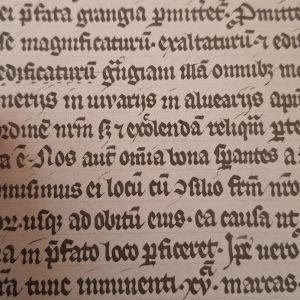 ei p̄fata grangia p̄mittet᷑. Pmitte
se magnificaturū· exaltaturū ⁊ edi
edificaturū gᷓngiam illā omnibꝫ m
nerijs in uiuarijs in aluearijs api
ordinē nr̄m sꝫ ⁊ excolendā reliqīn pte
a ē· Nos aut̄ om̄ia bona spantes a
missimus ei locū cū ɔsilio frm̄ nro
or· usqꝫ ad obitū eius· ea causa ut
a in p̄fato loco pficeret· Ip̄e uero
rā tunc imminenti· xv· marcas